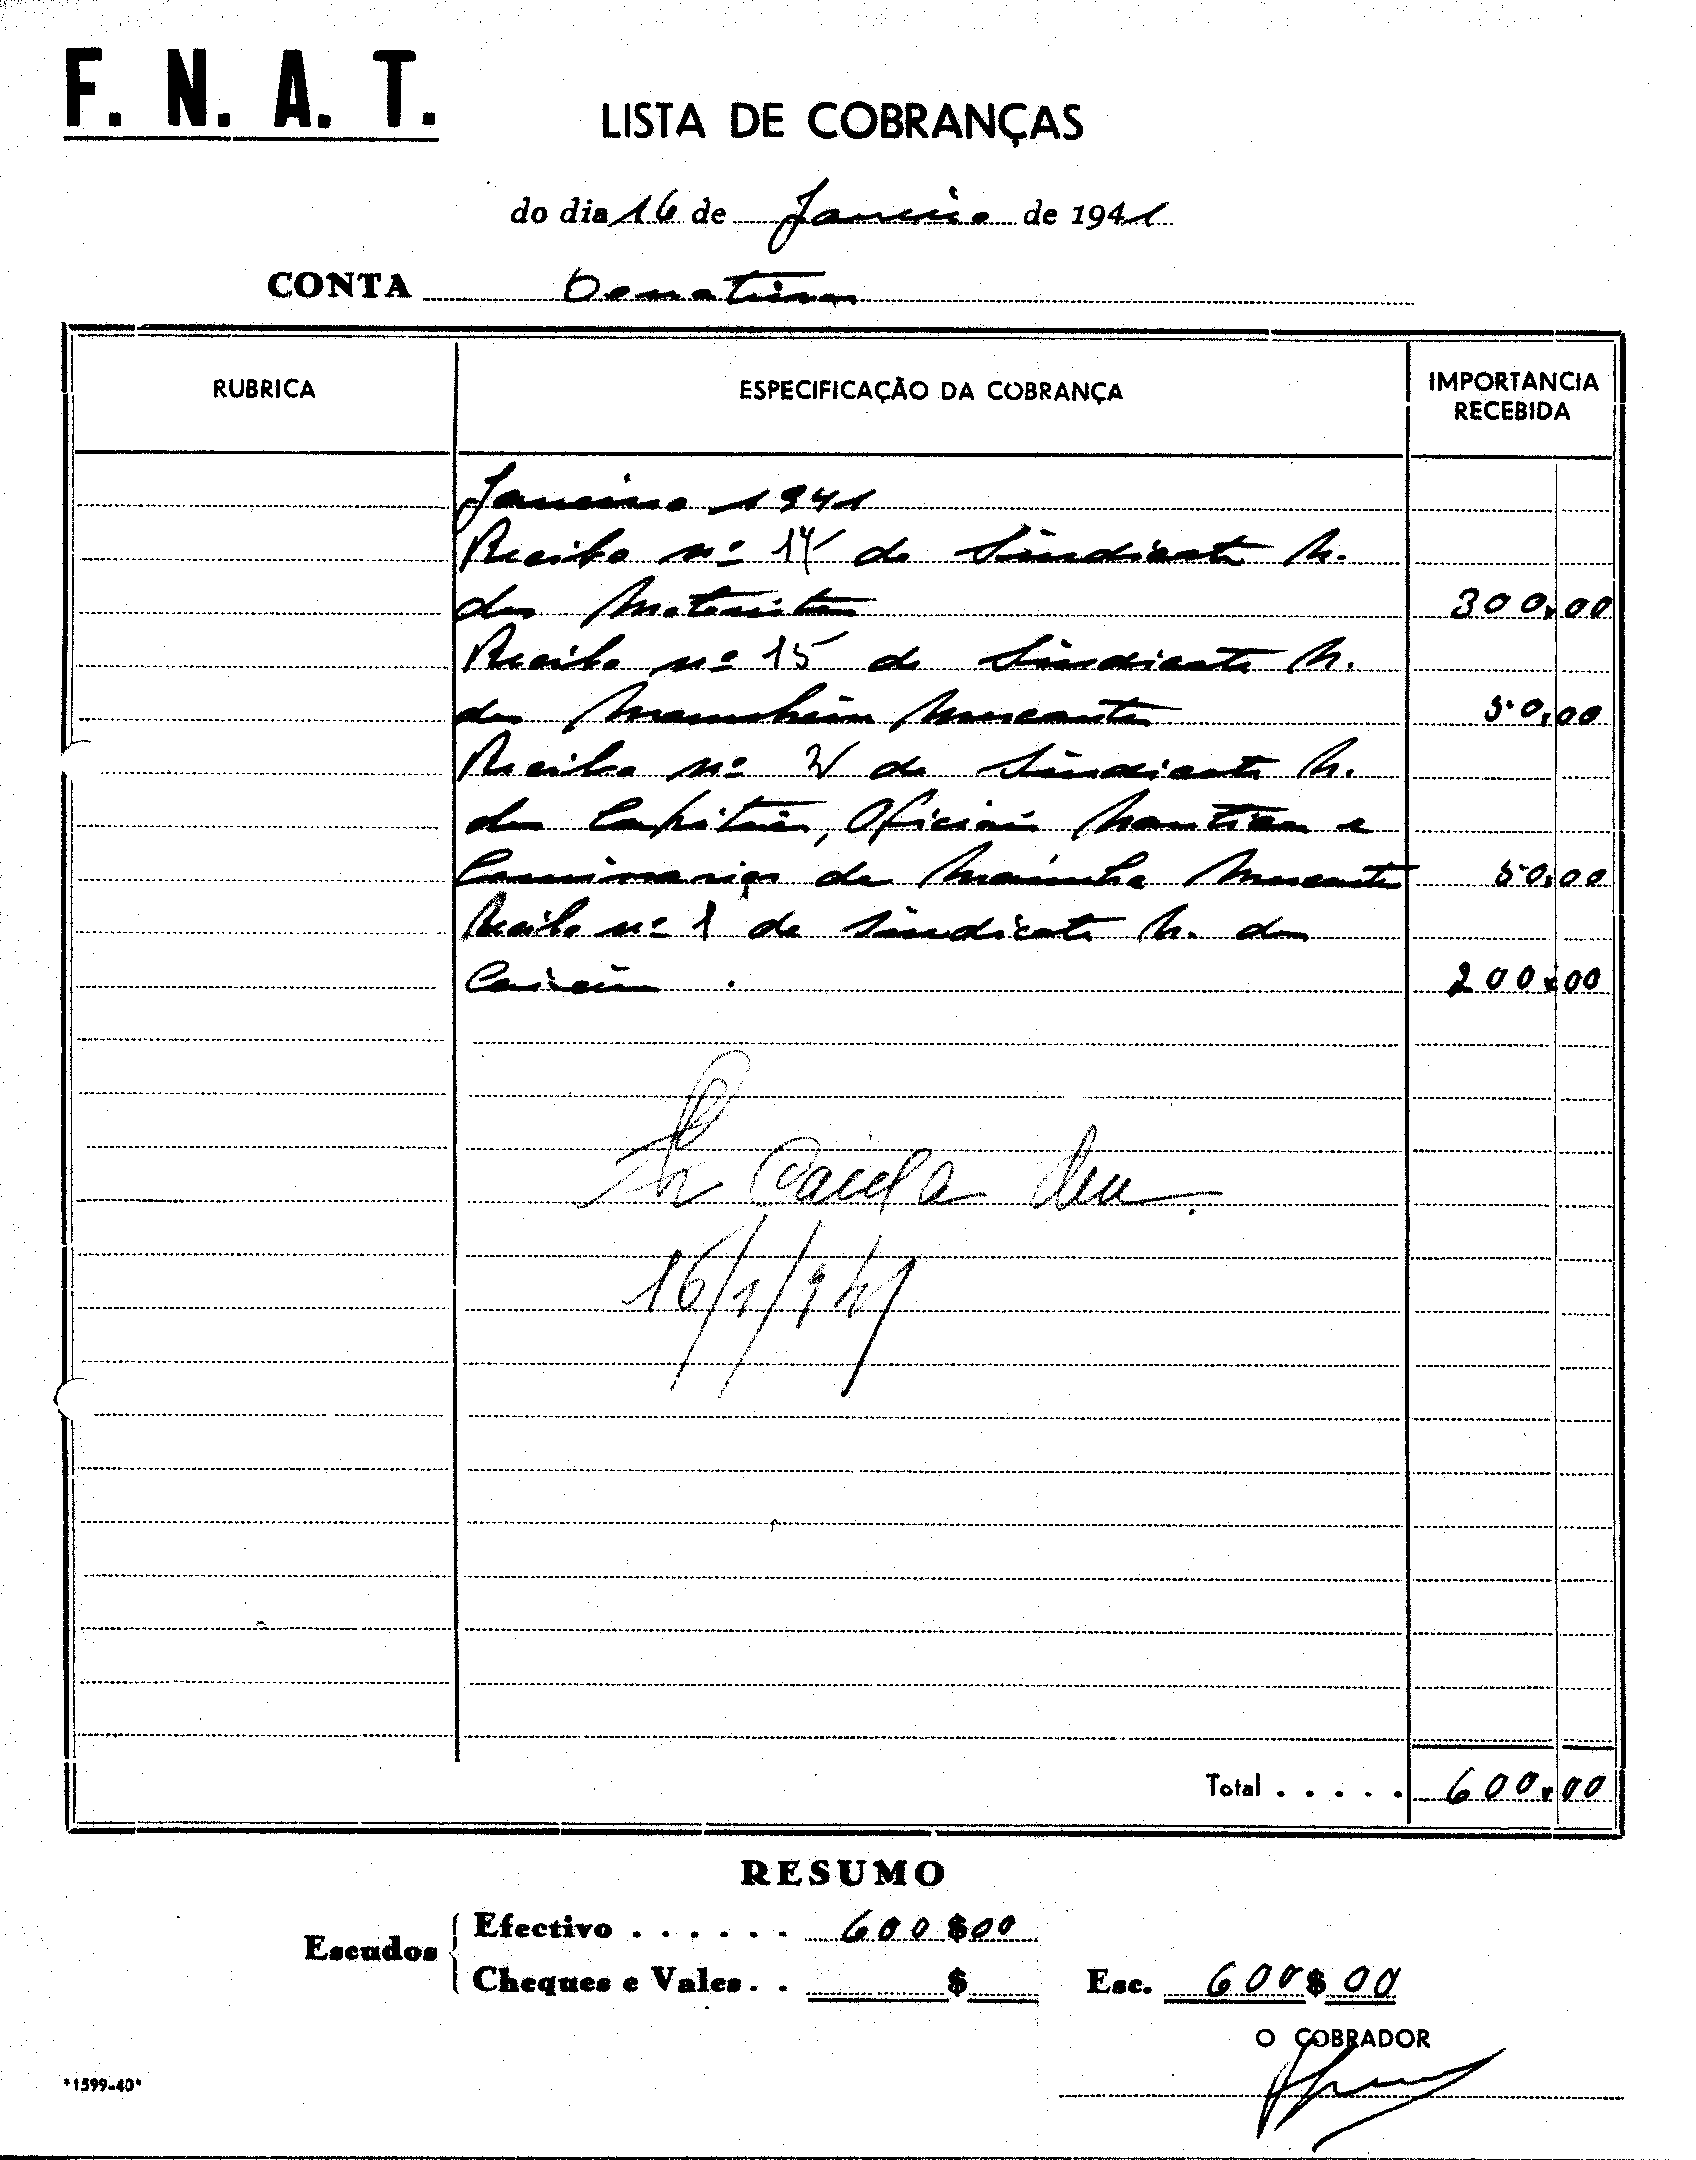 F. N. A. T.
LISTA DE COBRANÇAS
do dia 16 de Janeiro de 1941
CONTA Donativos
RUBRICA ESPECIFICAÇÃO DA COBRANÇA IMPORTANCIA RECEBIDA
Janeiro 1941
Recibo nº 14 do Sindicato N.
dos Motoristas 300,00
Recibo nº 15 do Sindicato N.
dos Mercante 50,00
Recibo nº 2 do Sindicato N.
dos Capitães, Oficiais Nauticos e
Comissarios da Marinha Mercante 50,00
Recibo nº 1 do Sindicato N. dos
200,00
16/1/941
Total . . . . . 600,00
RESUMO
Escudos
Efectivo . . . . . . 600$00
Cheques e Vales. . $ Esc. 600$00
O COBRADOR
*1599-40*